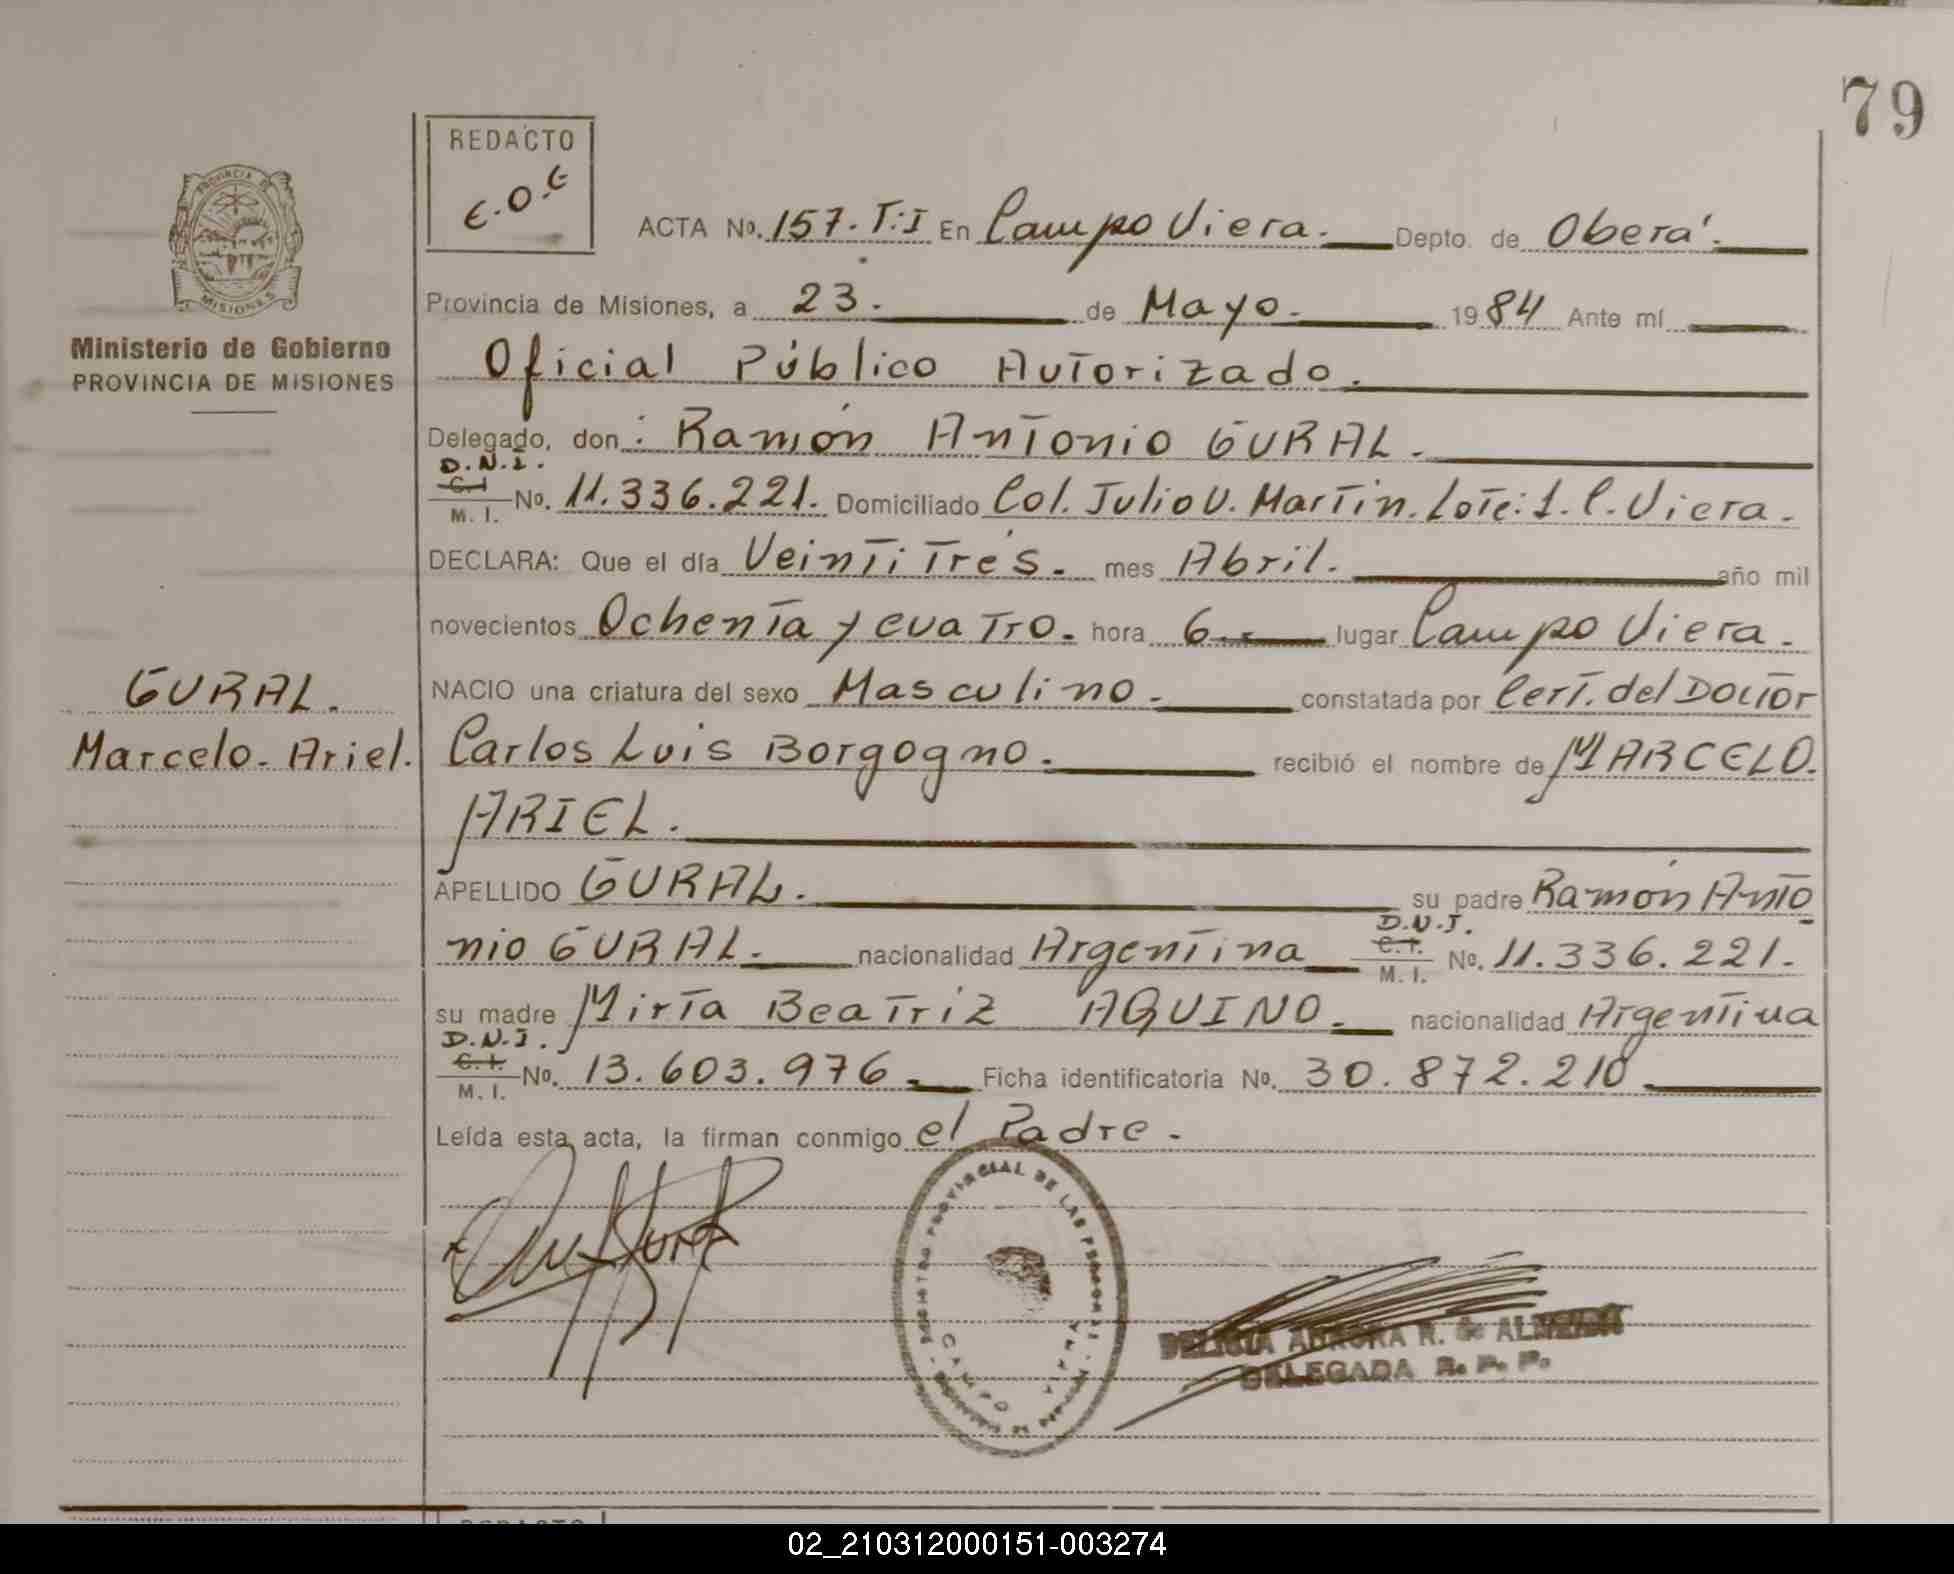 79
REDACTO
E.O.G
PROVINCIA DE
MISIONES
ACTA No. 157. T:I En Campo Viera. Depto. de Oberá.
Provincia de Misiones, a 23. de Mayo. 1984 Ante mí
Ministerio de Gobierno
PROVINCIA DE MISIONES
Oficial Público Autorizado.
Delegado, don: Ramón Antonio GURAL.
D.N.I.
C. I.
M. I. No. 11.336.221. Domiciliado Col. Julio U. Martin. Lote: 1. C. Viera.
DECLARA: Que el día Veintitrés. mes Abril. año mil
novecientos Ochenta y cuatro. hora 6.- lugar Campo Viera.
GURAL.
Marcelo. Ariel.
NACIO una criatura del sexo Masculino. constatada por Cert. del Doctor
Carlos Luis Borgogno. recibió el nombre de MARCELO.
ARIEL.
APELLIDO GURAL. su padre Ramón Anto
nio GURAL. nacionalidad Argentina D.N.I. C.I. M. I. No. 11.336.221.
su madre Mirta Beatriz AQUINO. nacionalidad Argentina
D.N.I.
C.I.
M. I. No. 13.603.976. Ficha identificatoria No. 30.872.210.
Leída esta acta, la firman conmigo el Padre.
REGISTRO PROVINCIAL DE LAS PERSONAS
CAMPO VIERA
DELICIA AURORA R. de ALMEIDA
DELEGADA R. P. P.
REDACTO
02_210312000151-003274